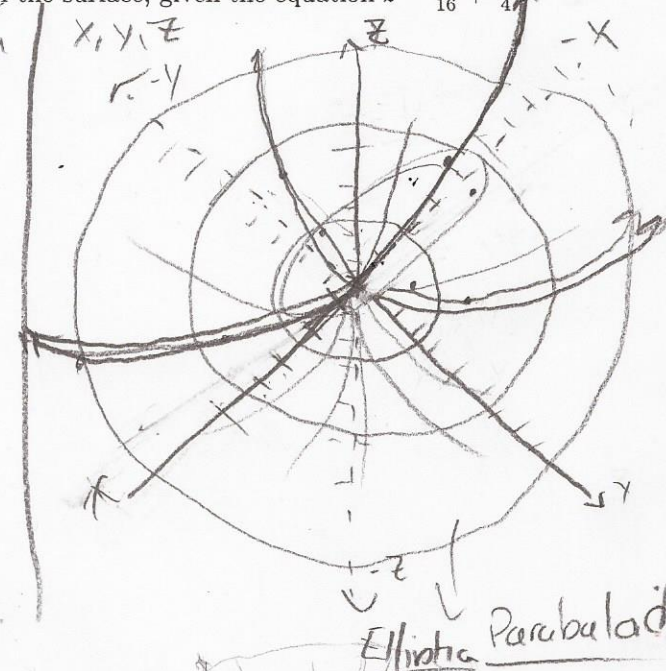 the surface, given the equation
16 4
X, Y, Z
Z
-X
-Y
X
Y
-Z
Elliptic Parabaload